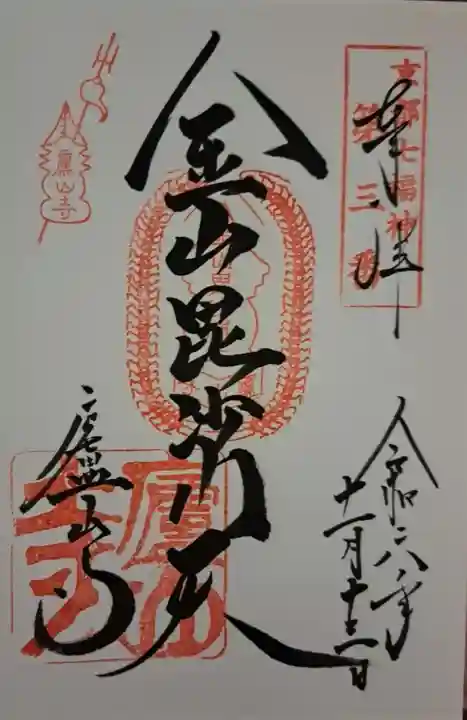 奉拝
京都七福神
第三番
金山毘沙門天
廬山寺
令和六年
十一月
廬山寺